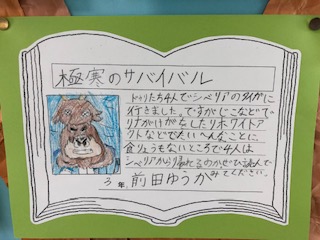 極寒のサバイバル
ドゥリたち4人でシベリアのタイガに
行きました。ですがじこなどで
リナがけがをしたりホワイトア
ウトなどでたいへんなことに。
食りょうもないところで4人は
シベリアから帰れるのかぜひ読んで
みてください。
3年 前田ゆうか